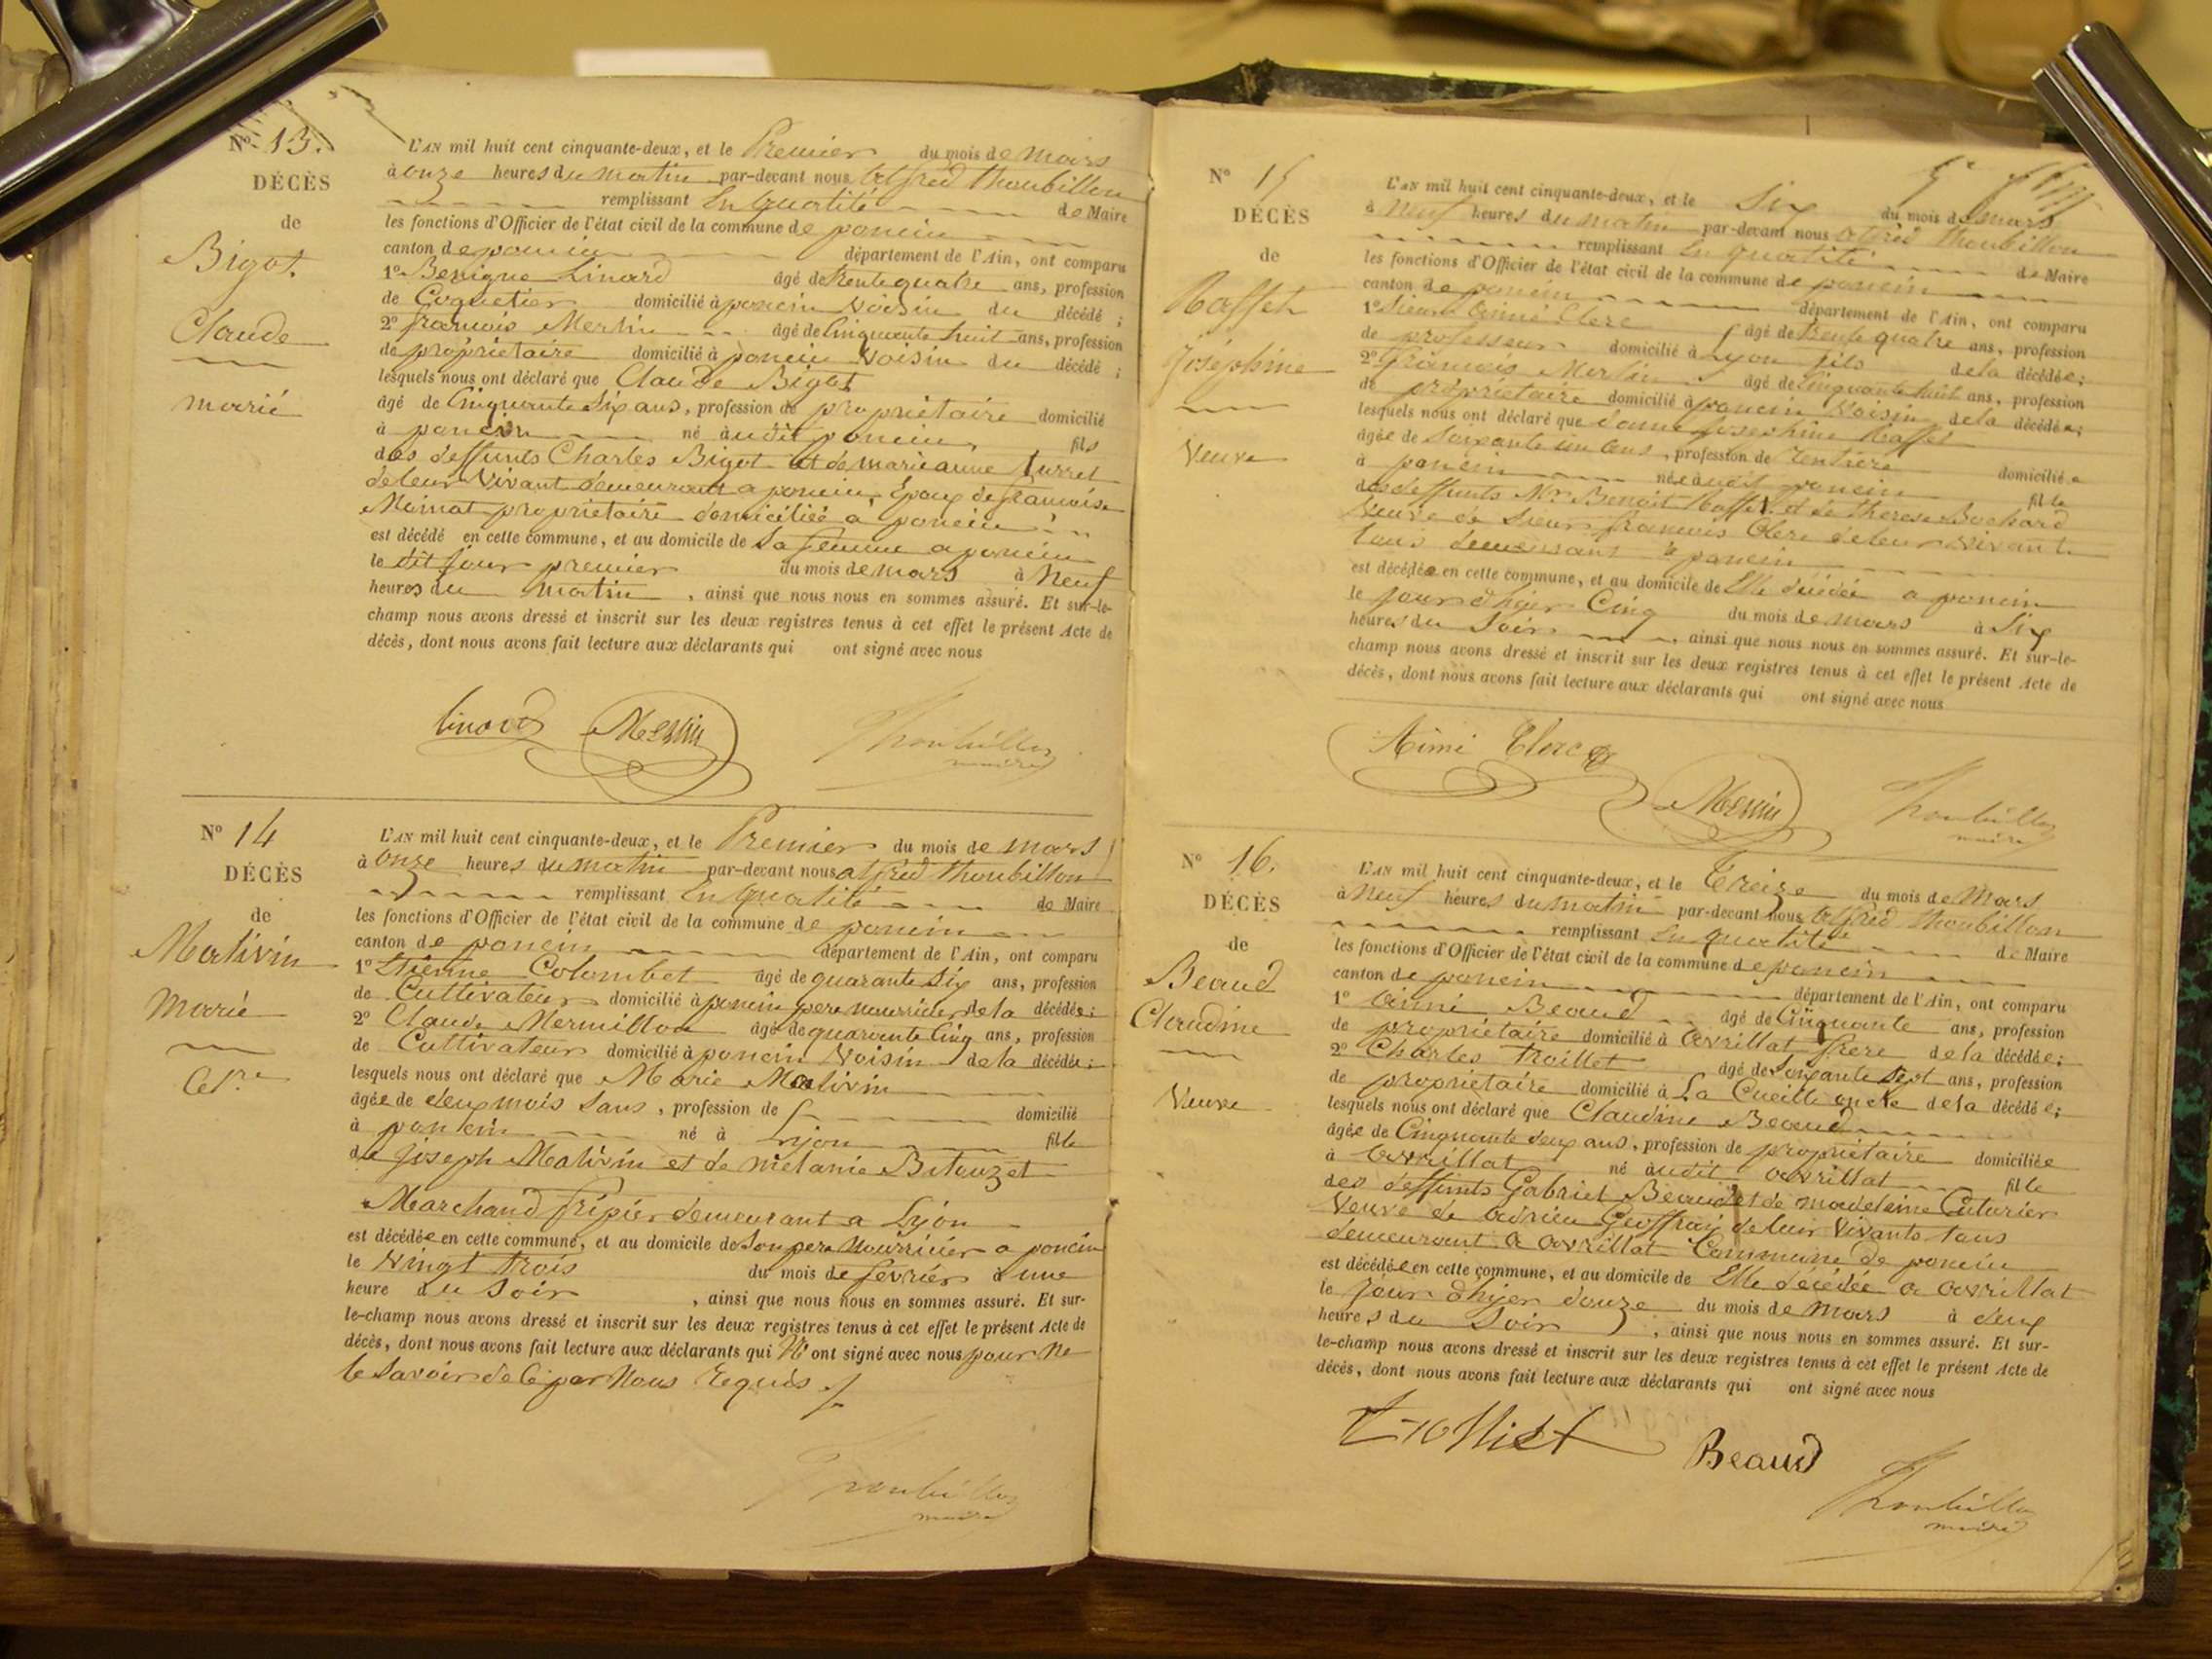 Nº 13.
DÉCÈS
de
Bigot
Claude
marié
L'AN mil huit cent cinquante-deux, et le Premier du mois de mars
à onze heures du matin par-devant nous alfred thoubillon
remplissant En qualité de Maire
les fonctions d'Officier de l'état civil de la commune de poncin
canton de poncin département de l'Ain, ont comparu
1º Benigne Linard âgé de trente quatre ans, profession
de Coquetier domicilié à poncin voisin du décédé ;
2º francois Merlin âgé de Cinquante huit ans, profession
de propriétaire domicilié à poncin voisin du décédé ;
lesquels nous ont déclaré que Claude Bigot
âgé de Cinquante Six ans, profession de propriétaire domicilié
à poncin né audit poncin fils
des deffunts Charles Bigot et de marie anne
de leur Vivant demeurant a poncin, Epoux de francoise
Moinat propriétaire domiciliée a poncin
est décédé en cette commune, et au domicile de Sa femme a poncin
le dit jour premier du mois de mars à Neuf
heures du matin, ainsi que nous nous en sommes assuré. Et sur-le-
champ nous avons dressé et inscrit sur les deux registres tenus à cet effet le présent Acte de
décès, dont nous avons fait lecture aux déclarants qui ont signé avec nous
Linard Merlin Thoubillon
maire
Nº 14
DÉCÈS
de
Mativin
Marie
L'AN mil huit cent cinquante-deux, et le Premier du mois de mars
à onze heures du matin par-devant nous alfred thoubillon
remplissant En qualité de Maire
les fonctions d'Officier de l'état civil de la commune de poncin
canton de poncin département de l'Ain, ont comparu
1º Etienne Colombet âgé de quarante Six ans, profession
de Cultivateur domicilié à poncin pere nourricier de la décédée ;
2º Claude Mermillon âgé de quarante Cinq ans, profession
de Cultivateur domicilié à poncin Voisin de la décédée ;
lesquels nous ont déclaré que Marie Mativin
âgée de deux mois Sans, profession de domicilié
à poncin né à Lyon fille
de Joseph Mativin et de mélanie Bitouzet
Marchand fripier demeurant a Lyon
est décédée en cette commune, et au domicile de Son pere Nourricier a poncin
le Vingt trois du mois de fevrier à une
heure du Soir, ainsi que nous nous en sommes assuré. Et sur-
le-champ nous avons dressé et inscrit sur les deux registres tenus à cet effet le présent Acte de
décès, dont nous avons fait lecture aux déclarants qui N' ont signé avec nous pour ne
le Savoir de Ce par Nous Requis
Thoubillon
maire
Nº 15
DÉCÈS
de
Raffet
Joséphine
Veuve
L'AN mil huit cent cinquante-deux, et le Six du mois de mars
à Neuf heures du matin par-devant nous alfred thoubillon
remplissant En qualité de Maire
les fonctions d'Officier de l'état civil de la commune de poncin
canton de poncin département de l'Ain, ont comparu
1º Sieur Aimé Clerc âgé de trente quatre ans, profession
de professeur domicilié à Lyon fils de la décédée ;
2º francois Merlin âgé de Cinquante huit ans, profession
de propriétaire domicilié à poncin Voisin de la décédée ;
lesquels nous ont déclaré que dame Josephine Raffet
âgée de Soixante un ans, profession de rentiere domiciliée
à poncin née audit poncin fille
des deffunts Mr Benoit Raffet et de therese Bochard
Veuve de Sieur francois Clerc de leur vivant
tous demeurant a poncin
est décédée en cette commune, et au domicile de Elle décédée a poncin
le jour d'hier Cinq du mois de mars à Six
heures du Soir, ainsi que nous nous en sommes assuré. Et sur-le-
champ nous avons dressé et inscrit sur les deux registres tenus à cet effet le présent Acte de
décès, dont nous avons fait lecture aux déclarants qui ont signé avec nous
Aimé Clerc
Merlin Thoubillon
maire
Nº 16.
DÉCÈS
de
Beaud
Claudine
Veuve
L'AN mil huit cent cinquante-deux, et le Treize du mois de Mars
à Neuf heures du matin par-devant nous alfred thoubillon
remplissant En qualité de Maire
les fonctions d'Officier de l'état civil de la commune de poncin
canton de poncin département de l'Ain, ont comparu
1º Aimé Beaud âgé de Cinquante ans, profession
de propriétaire domicilié à avrillat frere de la décédée ;
2º Charles Trolliet âgé de Soixante Sept ans, profession
de propriétaire domicilié à La Cueille oncle de la décédée ;
lesquels nous ont déclaré que Claudine Beaud
âgée de Cinquante deux ans, profession de propriétaire domiciliée
à avrillat né audit avrillat fille
des deffunts Gabriel Beaud et de madeleine Cuturier
Veuve de adrien Geoffray de leur Vivants tous
demeurant a avrillat Commune de poncin
est décédée en cette commune, et au domicile de Elle décédée a avrillat
le jour d'hyer douze du mois de mars à deux
heures du Soir, ainsi que nous nous en sommes assuré. Et sur-
le-champ nous avons dressé et inscrit sur les deux registres tenus à cet effet le présent Acte de
décès, dont nous avons fait lecture aux déclarants qui ont signé avec nous
Trolliet Beaud Thoubillon
maire